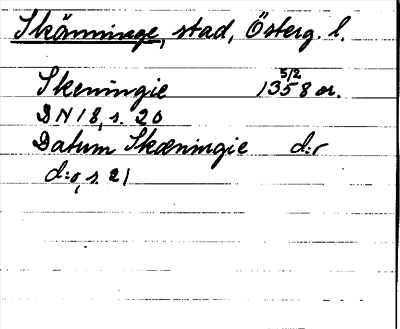 Skänninge, stad, Österg. l.
Skeningie 5/2 1358 or.
DN 18, s. 20
Datum Skæningie d:o
d:o, s. 21